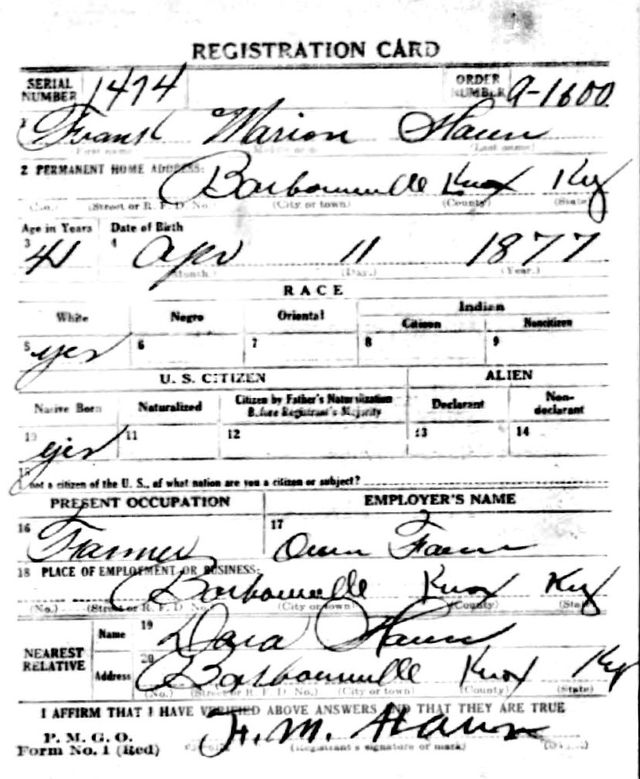 REGISTRATION CARD
SERIAL NUMBER 1474 ORDER NUMBER A-1600
1 Frank Marion Hawn
(First name) (Middle name) (Last name)
2 PERMANENT HOME ADDRESS:
Barbourville Knox Ky
(No.) (Street or R. F. D. No.) (City or town) (County) (State)
Age in Years Date of Birth
3 41 4 Apr 11 1877
(Month.) (Day.) (Year.)
RACE
White Negro Oriental Indian
Citizen Noncitizen
5 yes 6 7 8 9
U. S. CITIZEN ALIEN
Native Born Naturalized Citizen by Father's Naturalization Before Registrant's Majority Declarant Non-declarant
10 yes 11 12 13 14
15 not a citizen of the U. S., of what nation are you a citizen or subject?
PRESENT OCCUPATION EMPLOYER'S NAME
16 Farmer 17 Own Farm
18 PLACE OF EMPLOYMENT OR BUSINESS:
Barbourville Knox Ky
(No.) (Street or R. F. D. No.) (City or town) (County) (State)
NEAREST RELATIVE Name 19 Dora Hawn
Address 20 Barbourville Knox Ky
(No.) (Street or R. F. D. No.) (City or town) (County) (State)
I AFFIRM THAT I HAVE VERIFIED ABOVE ANSWERS AND THAT THEY ARE TRUE
P. M. G. O.
Form No. 1 (Red) F. M. Hawn
(Registrant's signature or mark)